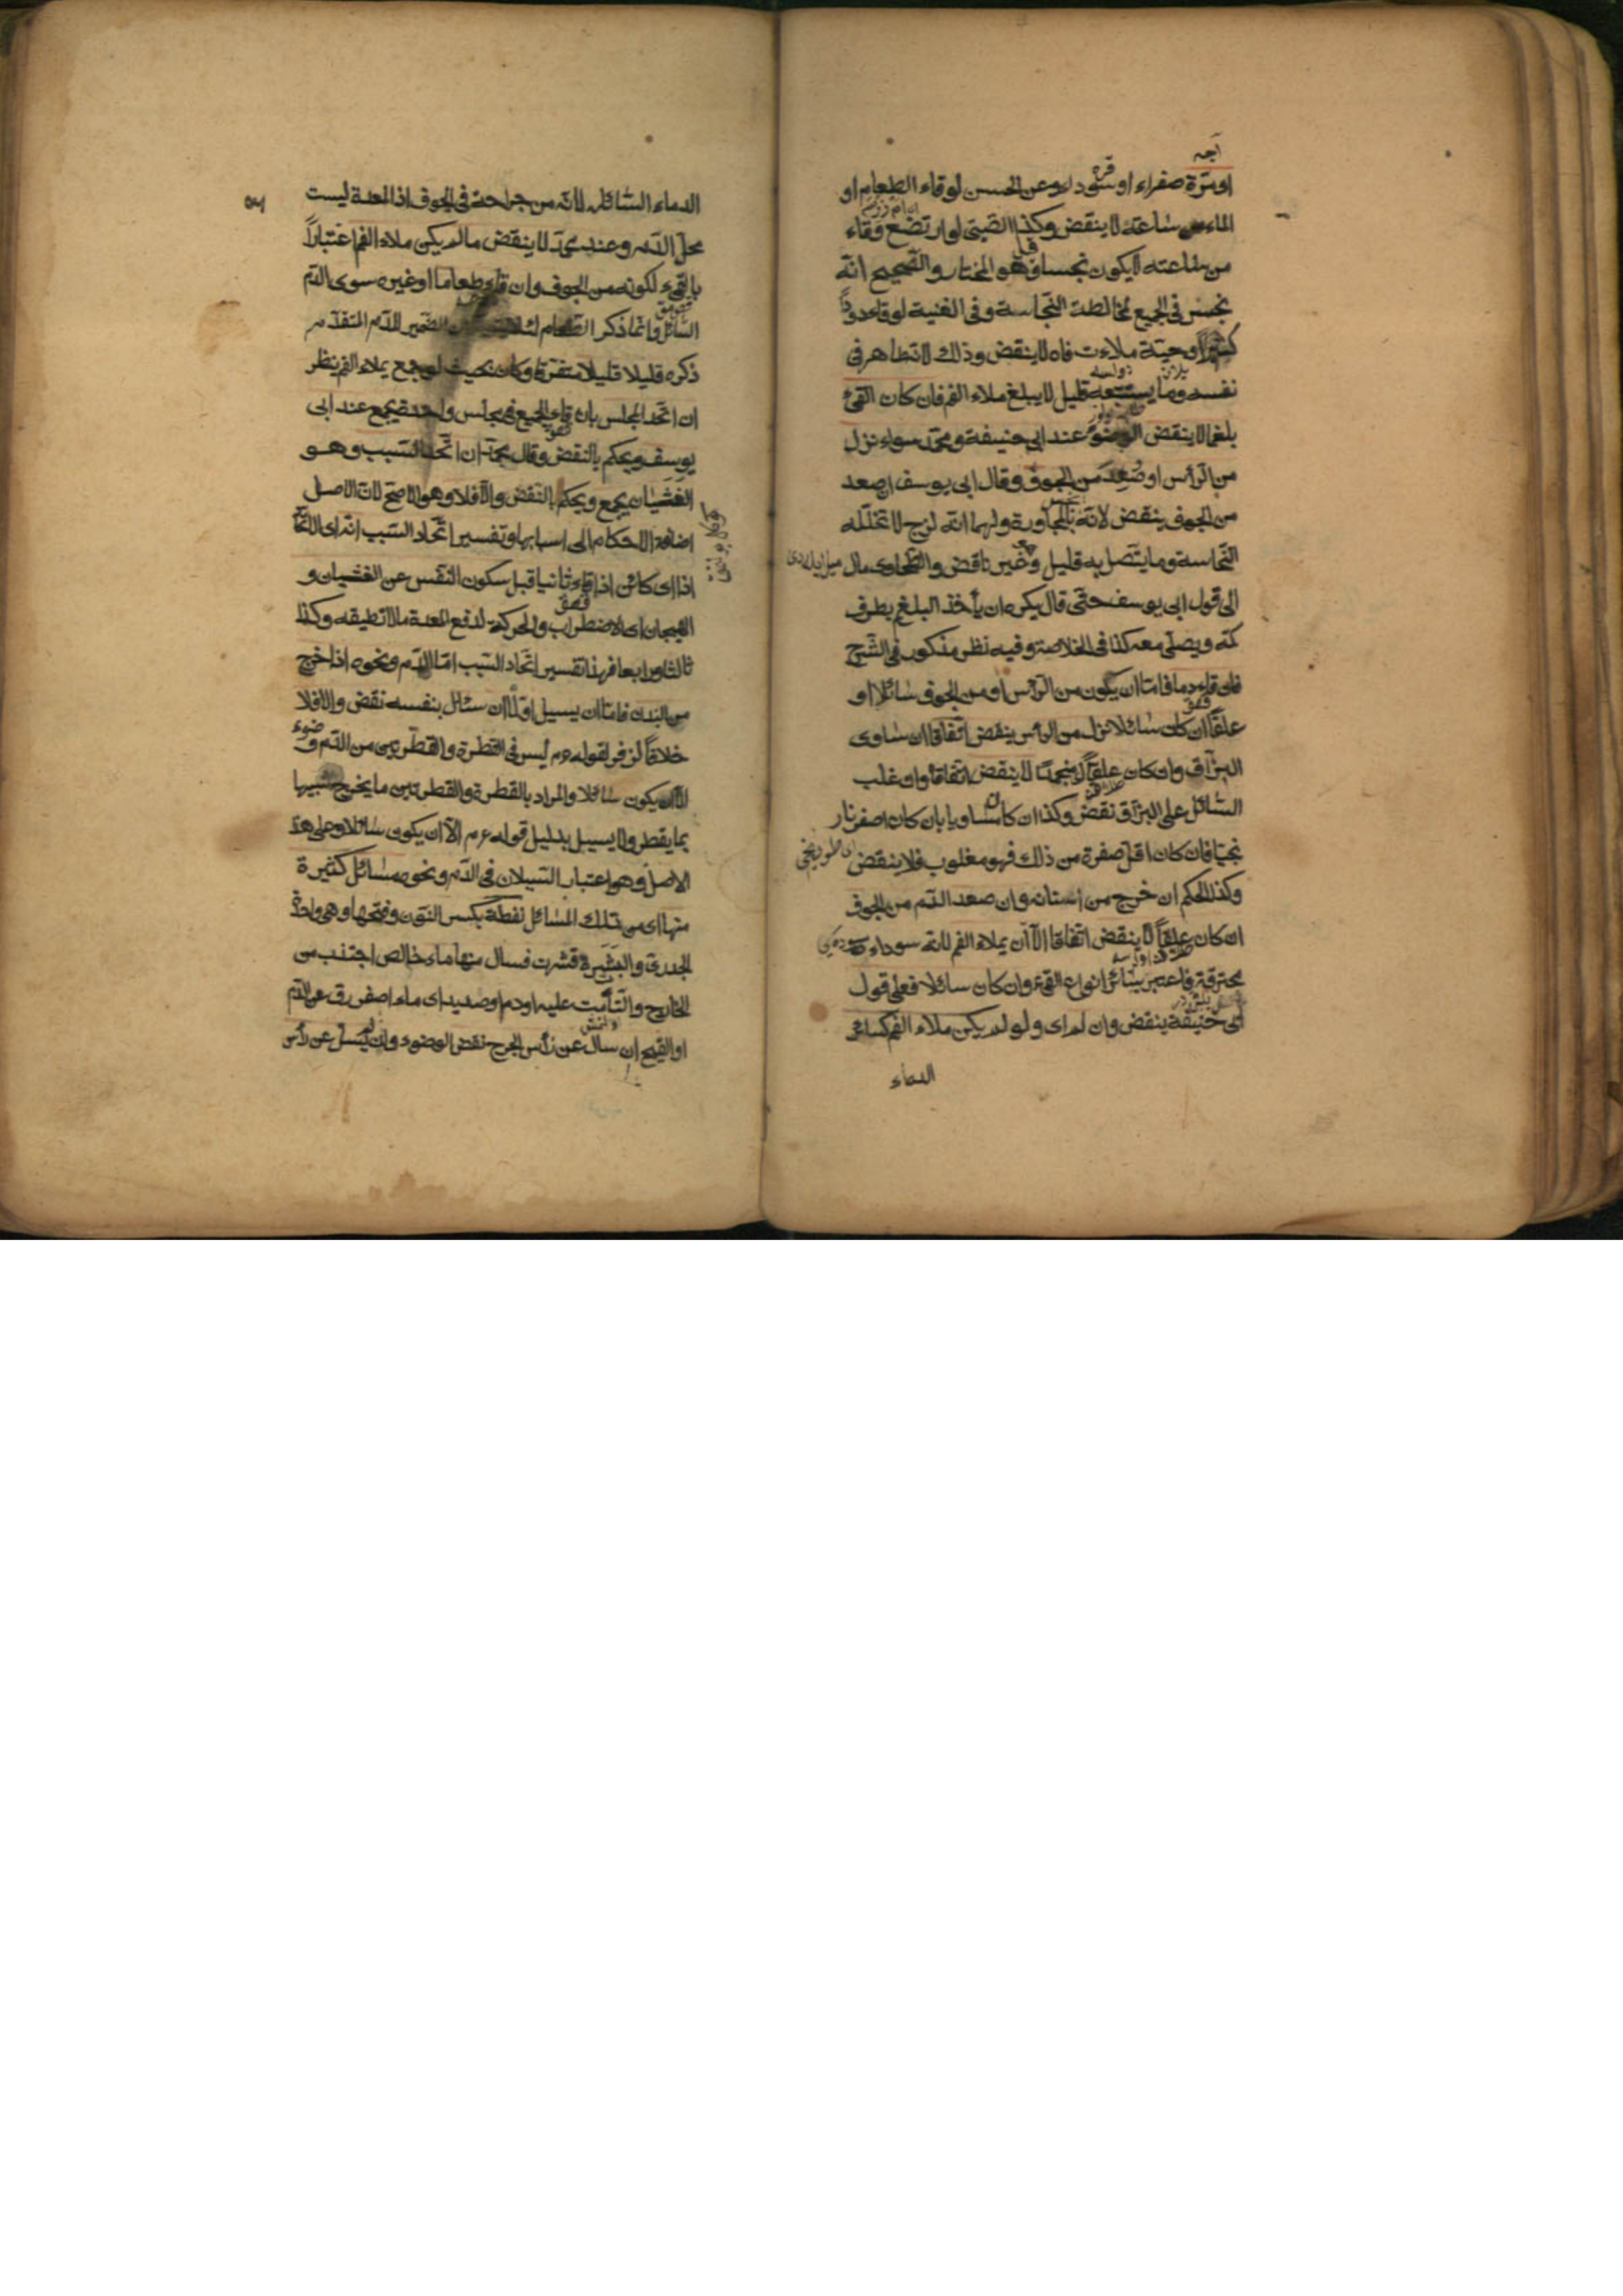 او مرّة صفراء او سوداء وعن الحسن لو قاء الطعام او
الماء من ساعته لا ينقض وكذا الصّبى لو ارتضع وقاء
من ساعته لا يكون نجسا وهو المختار والصّحيح انّه
نجس فى الجميع لمخالطة النّجاسة وفى الغنية لو قاء دودًا
كثيرًا او حيّة ملاءت فاه لا ينقض وذلك لانها طاهر فى
نفسه وما يستتبعه قليل لا يبلغ ملاء الفم فان كان القئ
بلغما لا ينقض الوضوء عند ابى حنيفة ومحمّد سواء نزل
من الرّأس او صعد من الجوف وقال ابى يوسف ان صعد
من الجوف ينقض لانّه نجس بالمجاورة ولهما انّه لزج لا تتخلّله
النّجاسة وما يتّصل به قليل وغير ناقض والطّحاوى مال
الى قول ابى يوسف حتّى قال يكره ان يأخذ البلغم بطرف
كمّه ويصلّى معه كذا فى الخلاصة وفيه نظر مذكور فى الشّرح
فان قاء دما فامّا ان يكون من الرّأس او من الجوف سائلا او
علقًا ان كان سائلا نزل من الرأس ينقض اتّفاقا ان ساوى
البزاق وان كان علقًا منجمدًا لا ينقض اتّفاقا وان غلب
السّائل على البزاق نقض وكذا ان كان متساويا بان كان اصفر نار
نجيّا فان كان اقلّ صفرة من ذلك فهو مغلوب فلا ينقض
وكذا الحكم ان خرج من اسنانه وان صعد الدّم من الجوف
ان كان علقًا لا ينقض اتّفاقا الّا ان يملاء الفم لانّه سوداء
محترقة فاعتبر بسائر انواع القئ وان كان سائلا فعلى قول
ابى حنيفة ينقض وان لم اى ولو لم يكن ملاء الفم كسائر
الدماء
الدماء السّائلة لانّه من جراحة فى الجوف اذ المعدة ليست
محلّ الدّم وعند محمّد لا ينقض ما لم يكن ملاء الفم اعتبارًا
بالقئ لكونه من الجوف وان قاء طعاما او غيره سوى الدّم
السّائل وانّما ذكر الطّعام الضّمير للدّم المتقدّم
ذكره قليلا قليلا متفرّقا وكان بحيث لو جمع يملاء الفم ينظر
ان اتّحد المجلس بان قاء الجميع فى مجلس واحد يجمع عند ابى
يوسف ويحكم بالنقض وقال محمّد ان اتّحد السّبب وهو
الغثيان يجمع ويحكم بالنّقض والّا فلا وهو الاصحّ لانّ الاصل
اضافة الاحكام الى اسبابها وتفسير اتّحاد السّبب انّه اى
اذا اى كائن اذا قاء ثانيا قبل سكون النّفس عن الغشيان و
الهيجان اى الاضطراب والحركة لدفع المعدة ما لا تطيقه وكذا
ثالثا ورابعا فهذا تفسير اتّحاد السّبب امّا الدّم ونحوه اذا خرج
من البدن فامّا ان يسيل او لا ان سال بنفسه نقض والّا فلا
خلافًا لزفر لقوله عم ليس فى القطرة والقطرتين من الدّم وضوء
الّا ان يكون سائلا والمراد بالقطرة والقطرتين ما يخرج شبيها
بما يقطر ولا يسيل بدليل قوله عم الّا ان يكون سائلا وعلى هذا
الاصل وهو اعتبار السّيلان فى الدّم ونحوه مسائل كثيرة
منها اى من تلك المسائل نفطة بكسر النّون وفتحها وهى واحدة
الجدرىّ والبثيرة قشرت فسال منها ماء خالص اجتذب من
الخارج والتأمت عليه او دم او صديد اى ماء اصفر رق عن الدّم
او القيح ان سال عن رأس الجرح نقض الوضوء وان لم يسل عن رأس